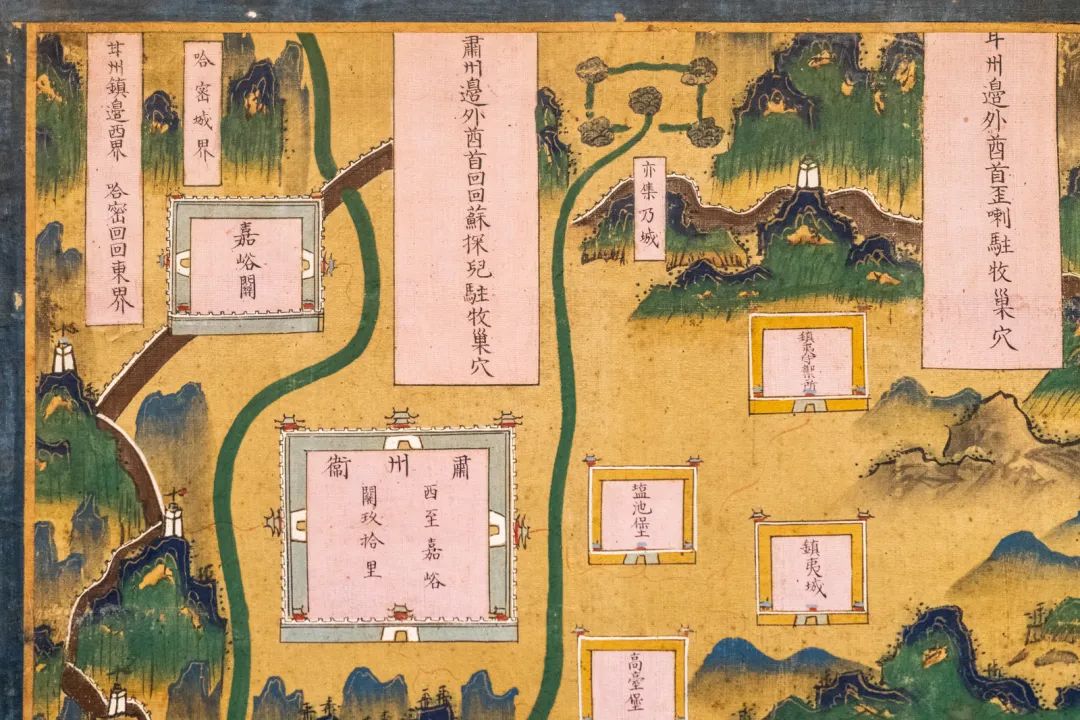 甘州邊外酋首歪喇駐牧巢穴
鎮夷守禦所
鎮夷城
亦集乃城
塩池堡
高臺堡
肅州邊外酋首回回蘇探兒駐牧巢穴
肅州衛
西至嘉峪
關玖拾里
嘉峪關
哈密城界
甘州鎮邊西界 哈密回回東界